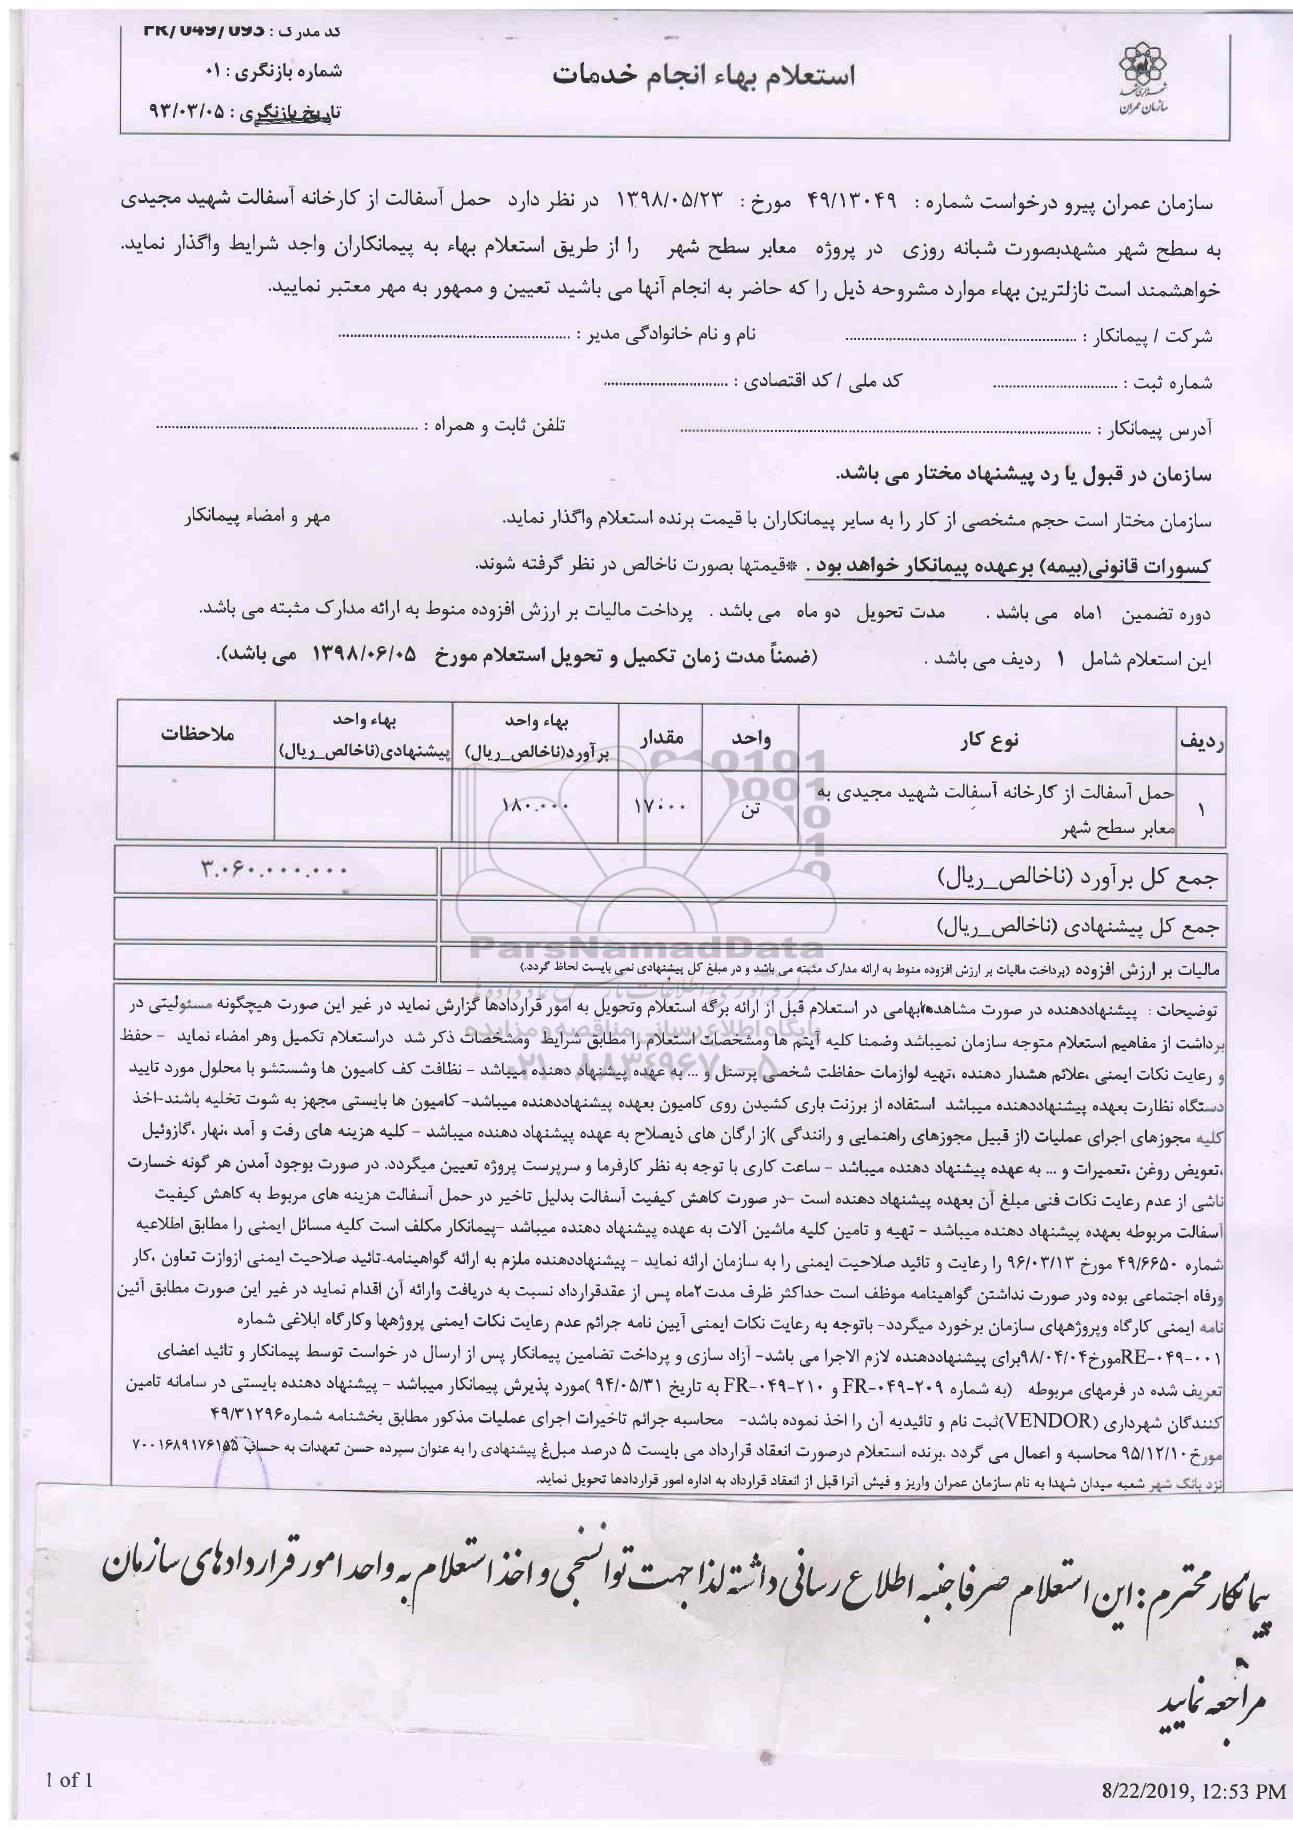 کد مدرک : FR/049/093
استعلام بهاء انجام خدمات
شماره بازنگری : ۰۱
تاریخ بازنگری : ۹۳/۰۳/۰۵
شهرداری مشهد
سازمان عمران
سازمان عمران پیرو درخواست شماره : ۴۹/۱۳۰۴۹ مورخ : ۱۳۹۸/۰۵/۲۳ در نظر دارد حمل آسفالت از کارخانه آسفالت شهید مجیدی
به سطح شهر مشهدبصورت شبانه روزی در پروژه معابر سطح شهر را از طریق استعلام بهاء به پیمانکاران واجد شرایط واگذار نماید.
خواهشمند است نازلترین بهاء موارد مشروحه ذیل را که حاضر به انجام آنها می باشید تعیین و ممهور به مهر معتبر نمایید.
شرکت / پیمانکار : .......................................... نام و نام خانوادگی مدیر : ..........................................
شماره ثبت : .............................. کد ملی / کد اقتصادی : ..............................
آدرس پیمانکار : .......................................... تلفن ثابت و همراه : ..........................................
سازمان در قبول یا رد پیشنهاد مختار می باشد.
سازمان مختار است حجم مشخصی از کار را به سایر پیمانکاران با قیمت برنده استعلام واگذار نماید. مهر و امضاء پیمانکار
کسورات قانونی(بیمه) برعهده پیمانکار خواهد بود . *قیمتها بصورت ناخالص در نظر گرفته شوند.
دوره تضمین ۱ماه می باشد . مدت تحویل دو ماه می باشد . پرداخت مالیات بر ارزش افزوده منوط به ارائه مدارک مثبته می باشد.
این استعلام شامل ۱ ردیف می باشد . (ضمناً مدت زمان تکمیل و تحویل استعلام مورخ ۱۳۹۸/۰۶/۰۵ می باشد).
ردیف نوع کار واحد مقدار بهاء واحد برآورد(ناخالص_ریال) بهاء واحد پیشنهادی(ناخالص_ریال) ملاحظات
۱ حمل آسفالت از کارخانه آسفالت شهید مجیدی به معابر سطح شهر تن ۱۷۰۰۰ ۱۸۰.۰۰۰
جمع کل برآورد (ناخالص_ریال) ۳.۰۶۰.۰۰۰.۰۰۰
جمع کل پیشنهادی (ناخالص_ریال)
ParsNamadData
مالیات بر ارزش افزوده (پرداخت مالیات بر ارزش افزوده منوط به ارائه مدارک مثبته می باشد و در مبلغ کل پیشنهادی نمی بایست لحاظ گردد.)
پایگاه اطلاع رسانی مناقصه و مزایده
۰۲۱-۸۸۳۴۹۶۷۰-۵
توضیحات : پیشنهاددهنده در صورت مشاهده ابهامی در استعلام قبل از ارائه برگه استعلام وتحویل به امور قراردادها گزارش نماید در غیر این صورت هیچگونه مسئولیتی در
برداشت از مفاهیم استعلام متوجه سازمان نمیباشد وضمنا کلیه آیتم ها ومشخصات استعلام را مطابق شرایط ومشخصات ذکر شد دراستعلام تکمیل وهر امضاء نماید - حفظ
و رعایت نکات ایمنی ،علائم هشدار دهنده ،تهیه لوازمات حفاظت شخصی پرسنل و ... به عهده پیشنهاد دهنده میباشد - نظافت کف کامیون ها وشستشو با محلول مورد تایید
دستگاه نظارت بعهده پیشنهاددهنده میباشد استفاده از برزنت باری کشیدن روی کامیون بعهده پیشنهاددهنده میباشد- کامیون ها بایستی مجهز به شوت تخلیه باشند-اخذ
کلیه مجوزهای اجرای عملیات (از قبیل مجوزهای راهنمایی و رانندگی )از ارگان های ذیصلاح به عهده پیشنهاد دهنده میباشد - کلیه هزینه های رفت و آمد ،نهار ،گازوئیل
،تعویض روغن ،تعمیرات و ... به عهده پیشنهاد دهنده میباشد - ساعت کاری با توجه به نظر کارفرما و سرپرست پروژه تعیین میگردد. در صورت بوجود آمدن هر گونه خسارت
ناشی از عدم رعایت نکات فنی مبلغ آن بعهده پیشنهاد دهنده است -در صورت کاهش کیفیت آسفالت بدلیل تاخیر در حمل آسفالت هزینه های مربوط به کاهش کیفیت
آسفالت مربوطه بعهده پیشنهاد دهنده میباشد - تهیه و تامین کلیه ماشین آلات به عهده پیشنهاد دهنده میباشد -پیمانکار مکلف است کلیه مسائل ایمنی را مطابق اطلاعیه
شماره ۴۹/۶۶۵۰ مورخ ۹۶/۰۳/۱۳ را رعایت و تائید صلاحیت ایمنی را به سازمان ارائه نماید - پیشنهاددهنده ملزم به ارائه گواهینامه-تائید صلاحیت ایمنی ازوازت تعاون ،کار
ورفاه اجتماعی بوده ودر صورت نداشتن گواهینامه موظف است حداکثر ظرف مدت۲ماه پس از عقدقرارداد نسبت به دریافت وارائه آن اقدام نماید در غیر این صورت مطابق آئین
نامه ایمنی کارگاه وپروژههای سازمان برخورد میگردد- باتوجه به رعایت نکات ایمنی آیین نامه جرائم عدم رعایت نکات ایمنی پروژهها وکارگاه ابلاغی شماره
RE-۰۴۹-۰۰۱مورخ۹۸/۰۴/۰۴برای پیشنهاددهنده لازم الاجرا می باشد- آزاد سازی و پرداخت تضامین پیمانکار پس از ارسال در خواست توسط پیمانکار و تائید اعضای
تعریف شده در فرمهای مربوطه (به شماره FR-۰۴۹-۲۰۹ و FR-۰۴۹-۲۱۰ به تاریخ ۹۴/۰۵/۳۱ )مورد پذیرش پیمانکار میباشد - پیشنهاد دهنده بایستی در سامانه تامین
کنندگان شهرداری (VENDOR)ثبت نام و تائیدیه آن را اخذ نموده باشد- محاسبه جرائم تاخیرات اجرای عملیات مذکور مطابق بخشنامه شماره۴۹/۳۱۲۹۶
مورخ۹۵/۱۲/۱۰ محاسبه و اعمال می گردد .برنده استعلام درصورت انعقاد قرارداد می بایست ۵ درصد مبلغ پیشنهادی را به عنوان سپرده حسن تعهدات به حساب ۷۰۰۱۶۸۹۱۷۶۱۵۵
نزد بانک شهر شعبه میدان شهدا به نام سازمان عمران واریز و فیش آنرا قبل از انعقاد قرارداد به اداره امور قراردادها تحویل نماید.
پیمانکار محترم : این استعلام صرفا جنبه اطلاع رسانی داشته لذا جهت توانسنجی و اخذ استعلام به واحد امور قراردادهای سازمان
مراجعه نمایید
1 of 1
8/22/2019, 12:53 PM